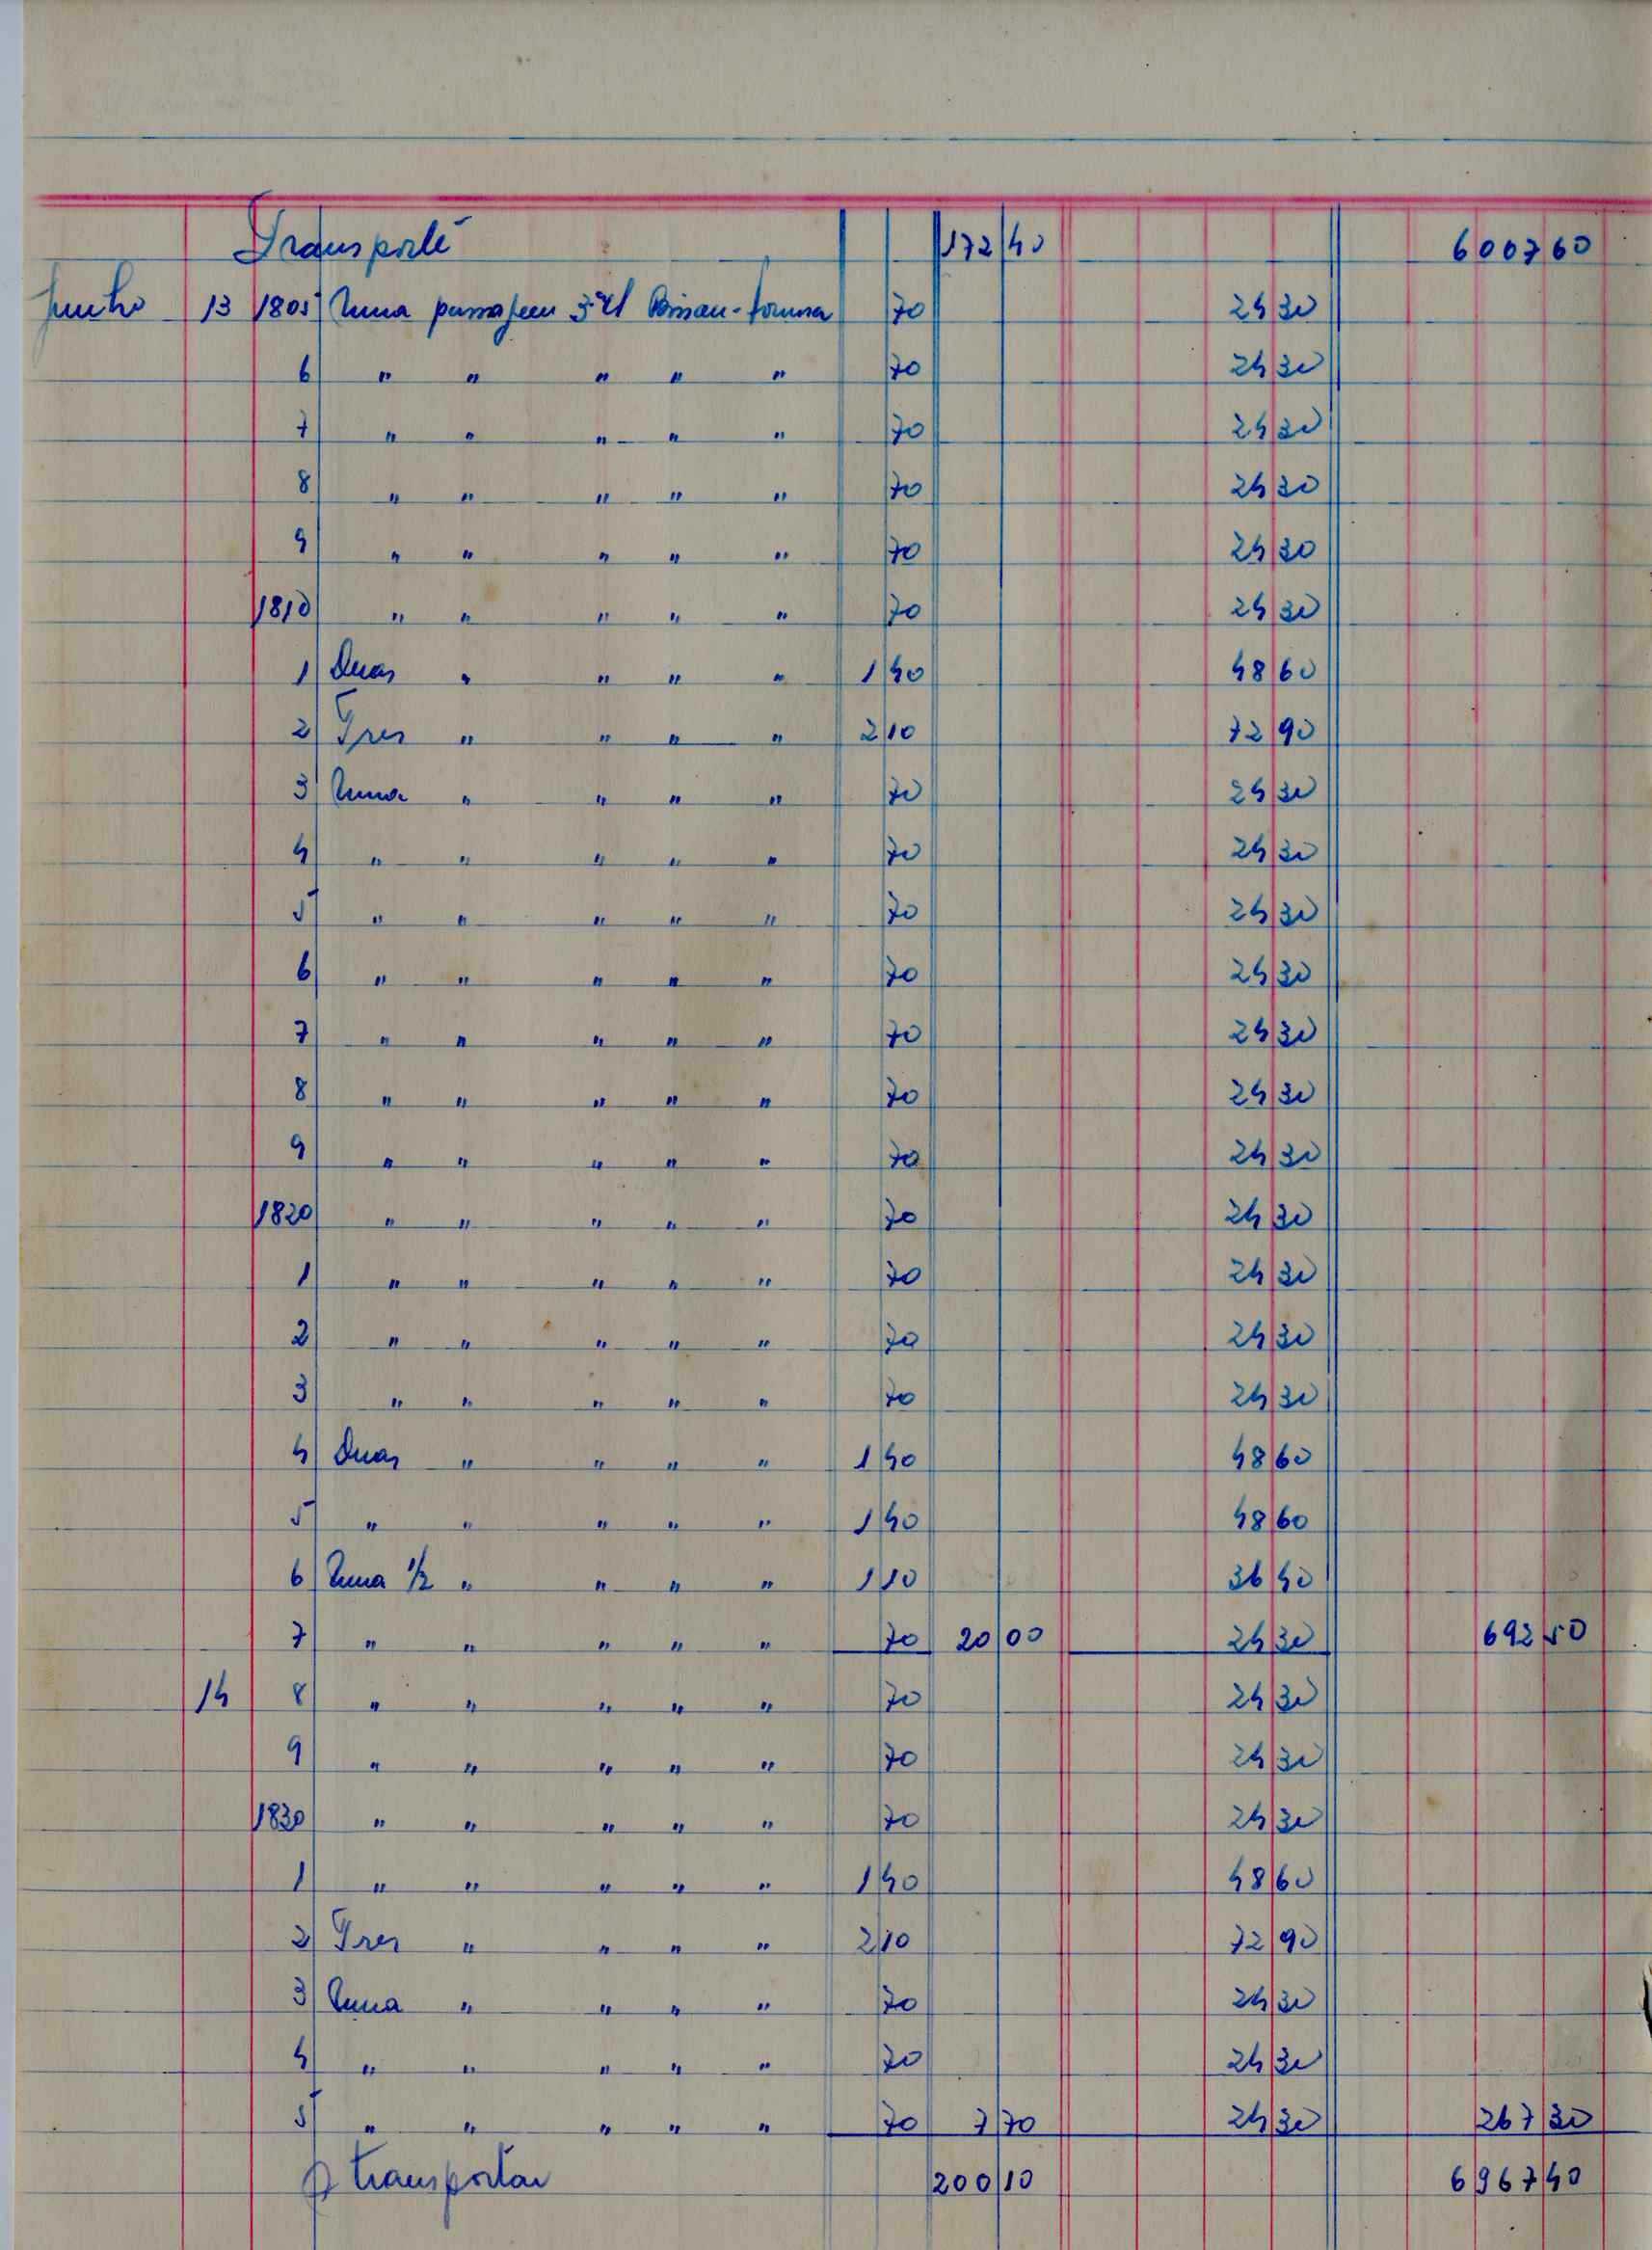 Transporte 172 40 6007 60
Junho 13 1805 Uma passagem 3ª cl Bissau-Formosa 70 24 30
6 " " " " " 70 24 30
7 " " " " " 70 24 30
8 " " " " " 70 24 30
9 " " " " " 70 24 30
1810 " " " " " 70 24 30
1 Duas " " " " 1 40 48 60
2 Tres " " " " 2 10 72 90
3 Uma " " " " 70 24 30
4 " " " " " 70 24 30
5 " " " " " 70 24 30
6 " " " " " 70 24 30
7 " " " " " 70 24 30
8 " " " " " 70 24 30
9 " " " " " 70 24 30
1820 " " " " " 70 24 30
1 " " " " " 70 24 30
2 " " " " " 70 24 30
3 " " " " " 70 24 30
4 Duas " " " " 1 40 48 60
5 " " " " " 1 40 48 60
6 Uma 1/2 " " " " 1 10 36 40
7 " " " " " 70 20 00 24 30 692 50
14 8 " " " " " 70 24 30
9 " " " " " 70 24 30
1830 " " " " " 70 24 30
1 " " " " " 1 40 48 60
2 Tres " " " " 2 10 72 90
3 Uma " " " " 70 24 30
4 " " " " " 70 24 30
5 " " " " " 70 7 70 24 30 267 30
A transportar 200 10 6967 40